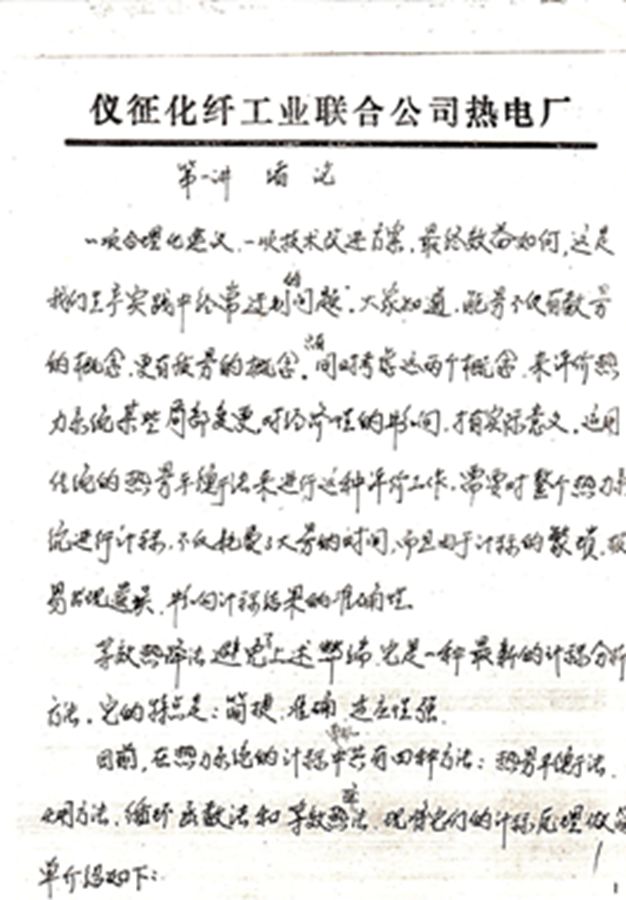 仪征化纤工业联合公司热电厂
第一讲 绪论
一项合理化建议、一项技术改进方案，最终效益如何，这是
我们生产实践中经常遇到的问题。大家知道，能量不仅有数量
的概念，更有质量的概念。只有同时考虑这两个概念，来评价热
力系统某些局部变更，对经济性的影响，才有实际意义。运用
传统的热量平衡法来进行这种评价工作，需要对整个热力系
统进行计算，不仅耗费了大量的时间，而且由于计算的繁琐，极
易出现差误，影响计算结果的准确性。
等效热降法避免了上述弊端，它是一种最新的计算分析
方法，它的特点是：简捷、准确、适应性强。
目前，在热力系统的计算中共有四种方法：热量平衡法、
用方法、循环函数法和等效热降法，现将它们的计算原理做简
单介绍如下：
1